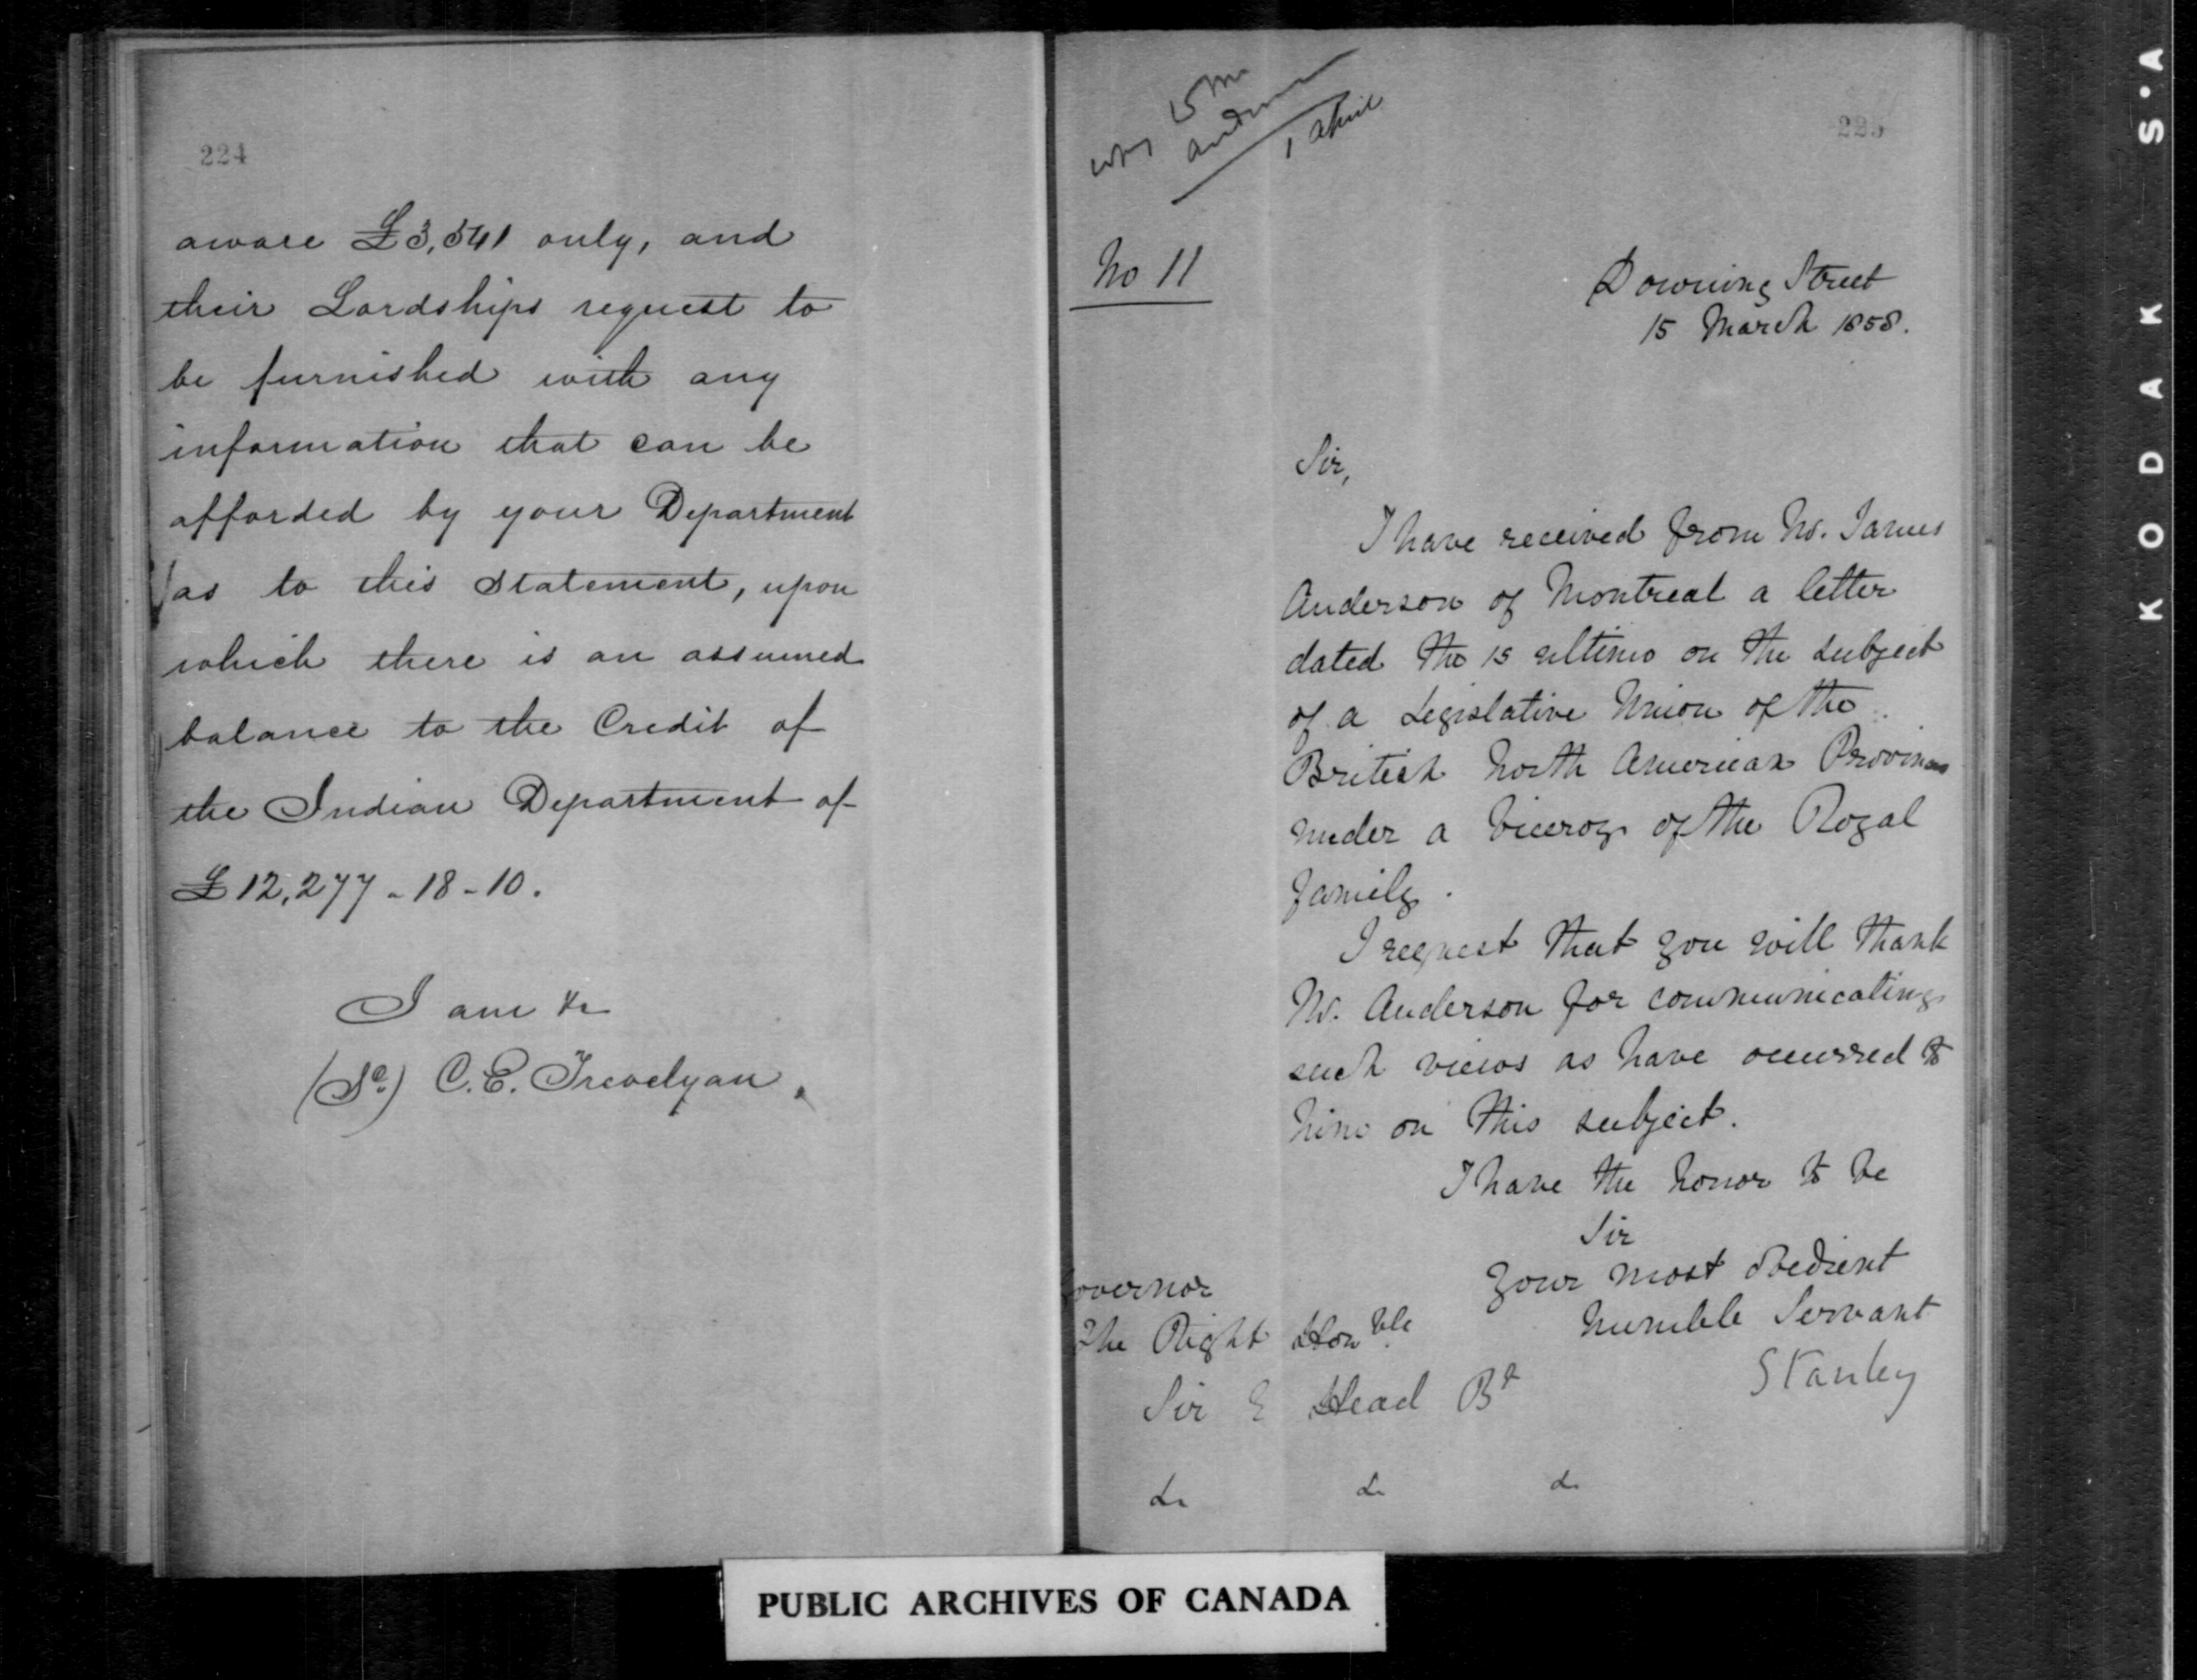 224
aware £3,541 only, and
their Lordships request to
be furnished with any
information that can be
afforded by your Department
as to this Statement, upon
which there is an assumed
balance to the Credit of
the Indian Department of
£12,277-18-10.
I am &c
(Sd.) C.E. Trevelyan.
1 April
No 11
Downing Street
15 March 1858.
Sir,
I have received from Mr. James
Anderson of Montreal a letter
dated the 15 ultimo on the subject
of a Legislative Union of the
British North American Provinces
under a Viceroy of the Royal
family.
I request that you will thank
Mr. Anderson for communicating
such views as have occurred to
him on this subject.
I have the honor to be
Sir
Your most obedient
humble Servant
Stanley
Governor
The Right Honble.
Sir E Head Bt
&c &c &c
PUBLIC ARCHIVES OF CANADA
KODAK S.A